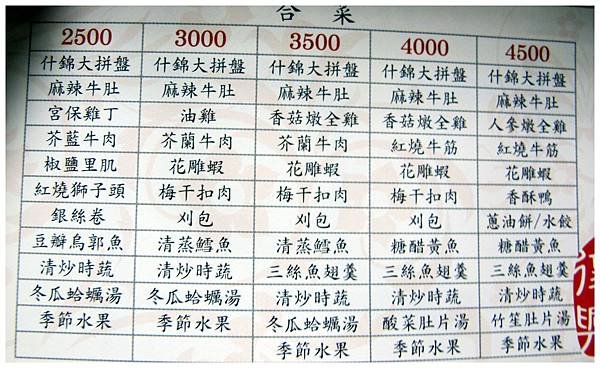 合菜
2500 3000 3500 4000 4500
什錦大拼盤 什錦大拼盤 什錦大拼盤 什錦大拼盤 什錦大拼盤
麻辣牛肚 麻辣牛肚 麻辣牛肚 麻辣牛肚 麻辣牛肚
宮保雞丁 油雞 香菇燉全雞 香菇燉全雞 人參燉全雞
芥藍牛肉 芥蘭牛肉 芥蘭牛肉 紅燒牛筋 紅燒牛筋
椒鹽里肌 花雕蝦 花雕蝦 花雕蝦 花雕蝦
紅燒獅子頭 梅干扣肉 梅干扣肉 梅干扣肉 香酥鴨
銀絲卷 刈包 刈包 刈包 蔥油餅/水餃
豆瓣烏郭魚 清蒸鱈魚 清蒸鱈魚 糖醋黃魚 糖醋黃魚
清炒時蔬 清炒時蔬 三絲魚翅羹 三絲魚翅羹 三絲魚翅羹
冬瓜蛤蠣湯 冬瓜蛤蠣湯 清炒時蔬 清炒時蔬 清炒時蔬
季節水果 季節水果 冬瓜蛤蠣湯 酸菜肚片湯 竹笙肚片湯
季節水果 季節水果 季節水果